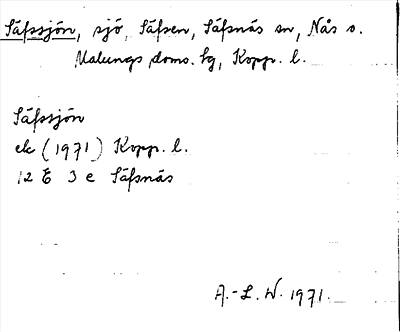 Säfssjön, sjö, Säfsen, Säfsnäs sn, Nås o.
Malungs doms. lg, Kopp. l.
Säfssjön
ek (1971) Kopp. l.
12 E 3 e Säfsnäs
A.-L. W. 1971.